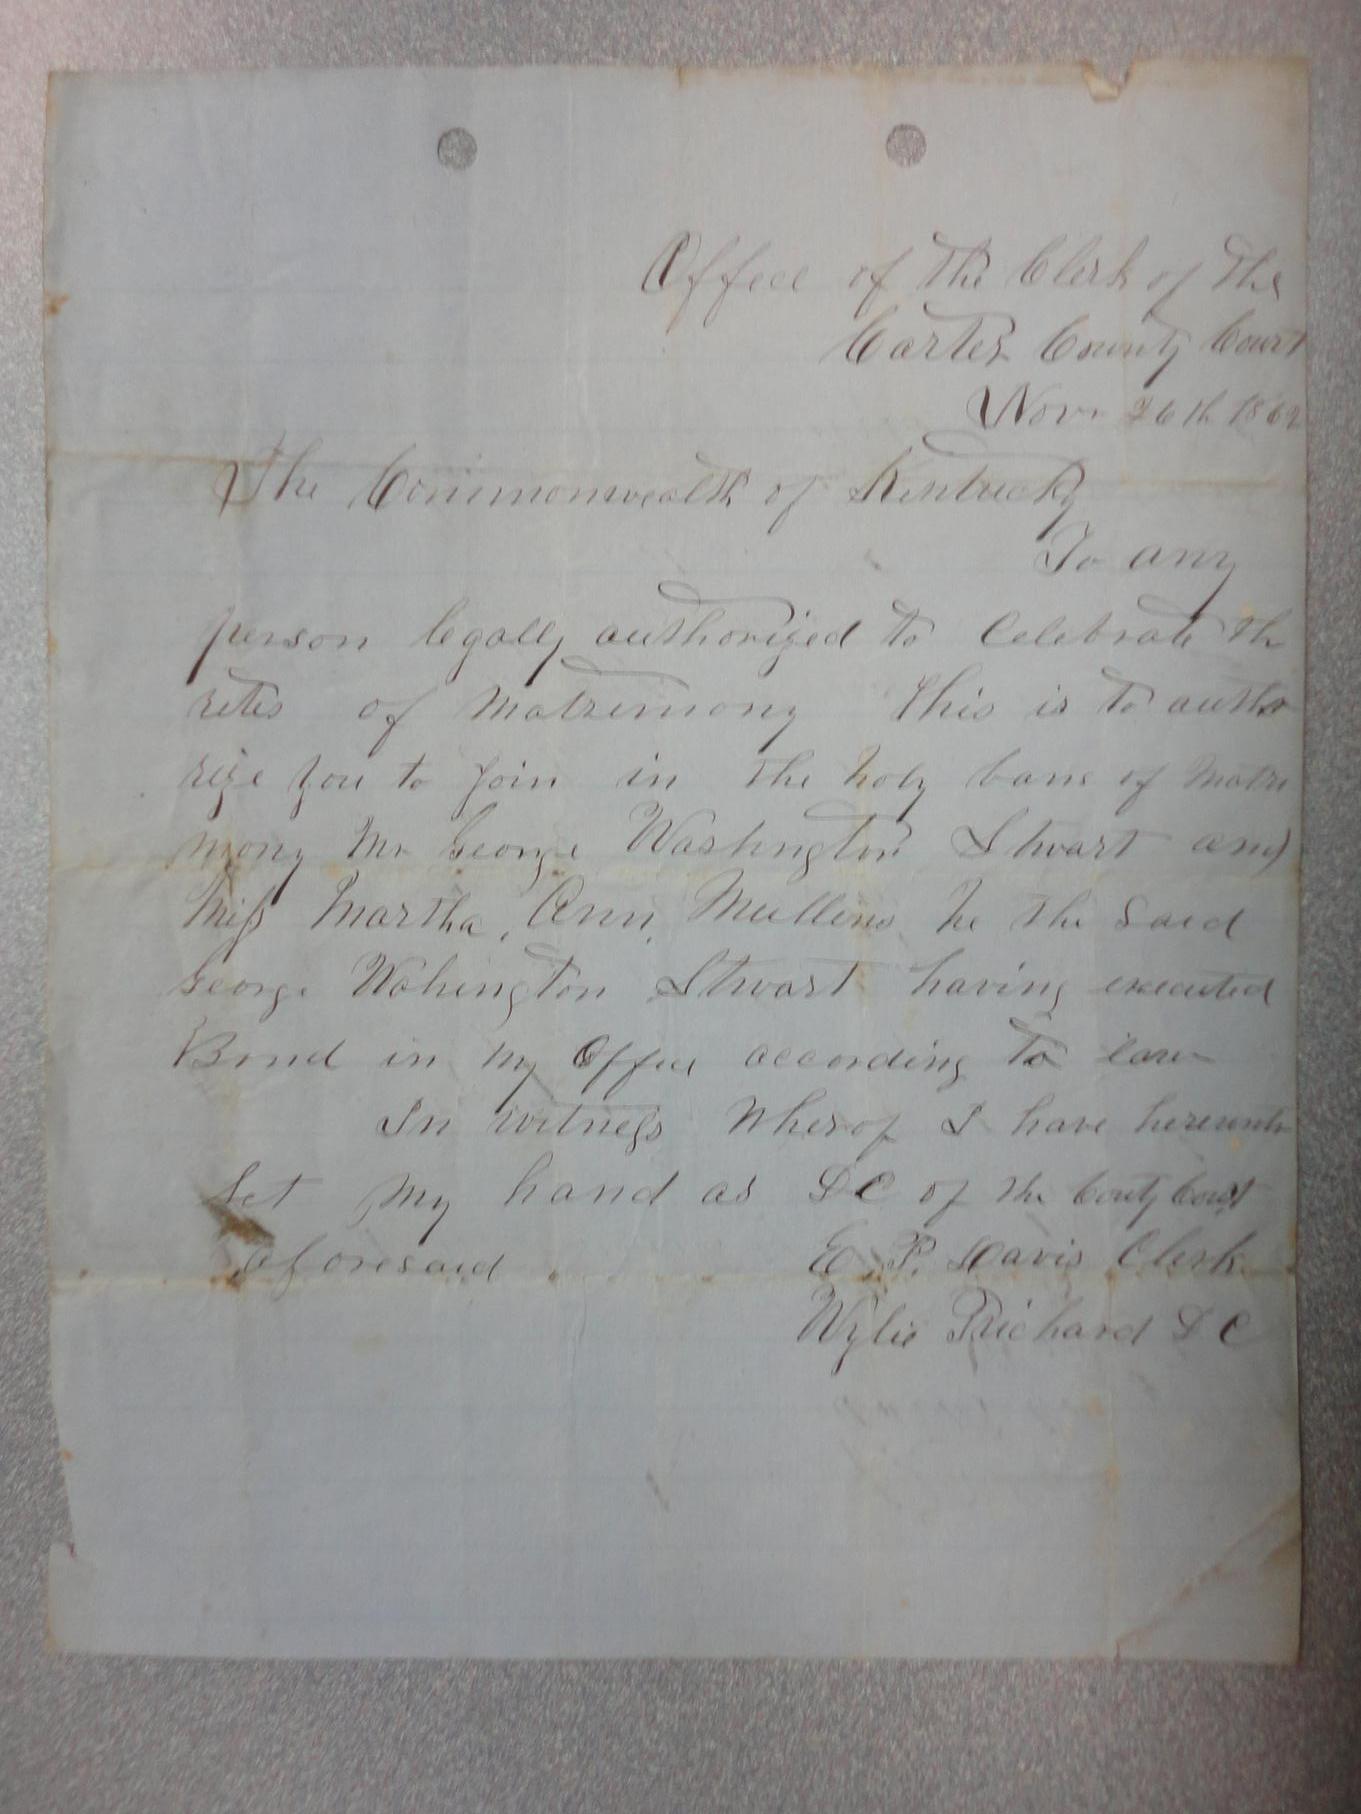 Office of the Clerk of the
Carter County Court
Novr 26th 1862
The Commonwealth of Kentucky
To any
person legally authorized to Celebrate th
rites of Matrimony This is to autho
rize you to Join in the holy bans of Matri
mony Mr George Washington Stwart and
Miss Martha Ann Mullins he the Said
George Wahington Stwart having executed
Bond in my Office according to law
In witness Wherof I have hereunto
Set my hand as DC of the Couty Court
aforesaid E. P. Davis Clerk
Wylie Prichard DC